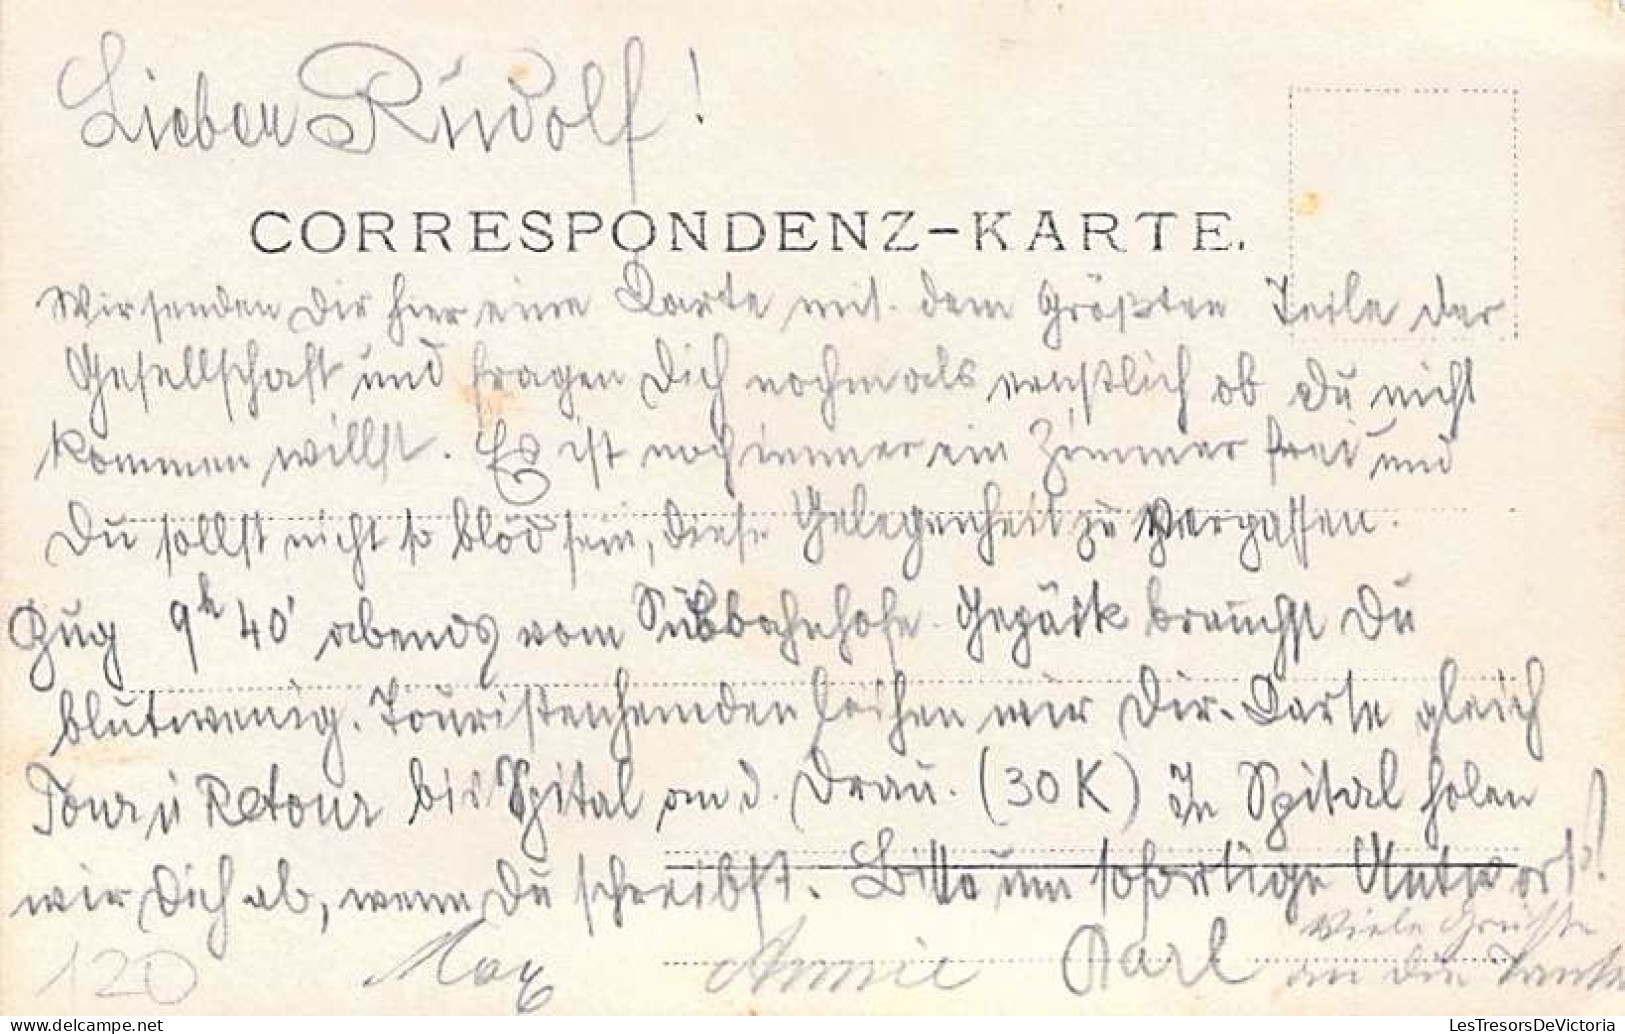 Lieber Rudolf!
CORRESPONDENZ-KARTE.
Wir senden Dir hier eine Karte mit dem Größten Teile der
Gesellschaft und fragen Dich nochmals ernstlich ob Du nicht
kommen willst. Es ist noch immer ein Zimmer frei und
Du sollst nicht so blöd sein, diese Gelegenheit zu vergassen.
Zug 9h 40' abends vom Südbahnhofe. Gepäck brauchst Du
blutwenig. Touristenhemden leihen wir Dir. Karte gleich
Tour u Retour bis Spital an d. Drau. (30K) In Spital holen
wir Dich ab, wenn Du schreibst. Bitte um sofortige Antwort!
Viele Grüsse
120 Max Annie Karl an die Tante
LesTresorsDeVictoria